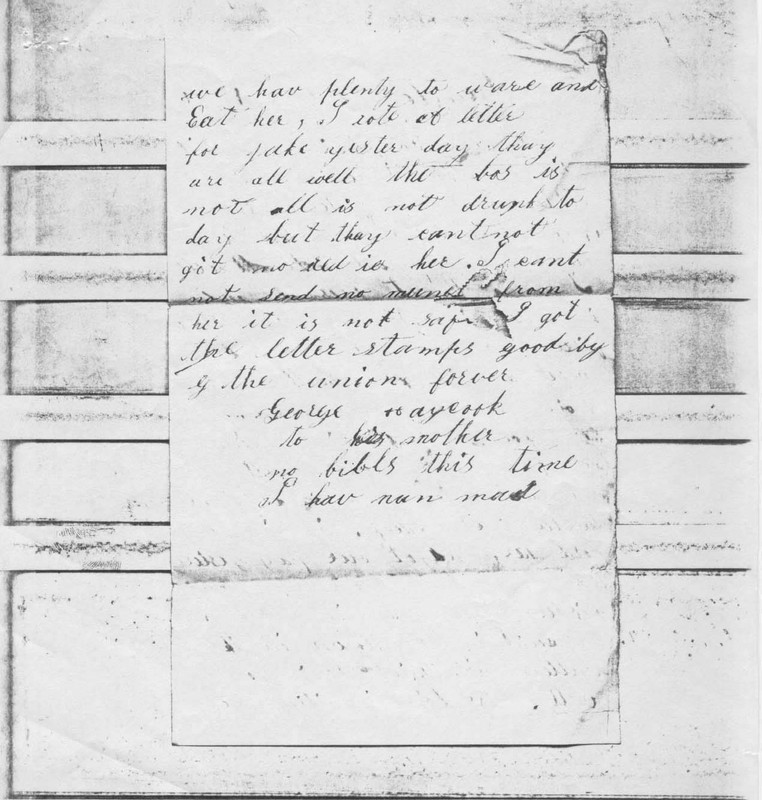 we hav plenty to ware and
Eat her, I rote at letter
for jake yester day thay
are all well the bos is
not all is not drunk to
day but thay cant not
git no her I cant
not send no from
her it is not safe I got
the letter stamps good by
the union forver
George
to his mother
no bibls this time
I hav nun mad